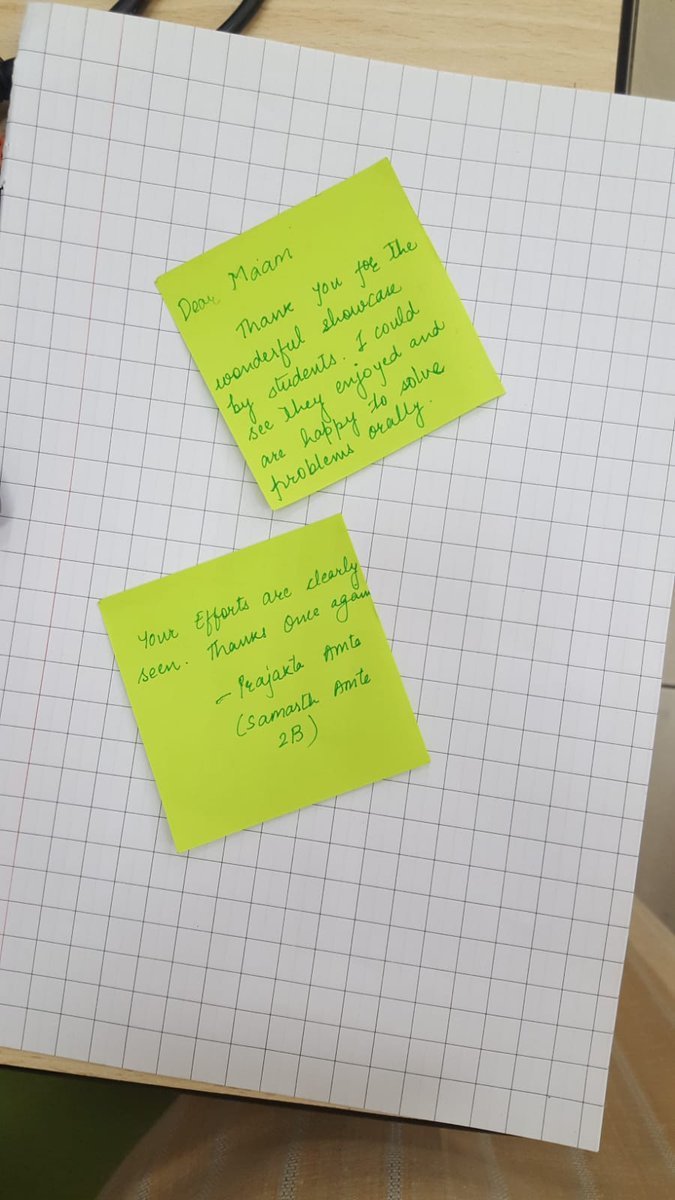 Dear Ma'am
Thank you for the
wonderful showcase
by students. I could
see they enjoyed and
are happy to solve
problems orally.
Your Efforts are clearly
seen. Thanks Once again
- Prajakta Amte
(Samarth Amte
2B)